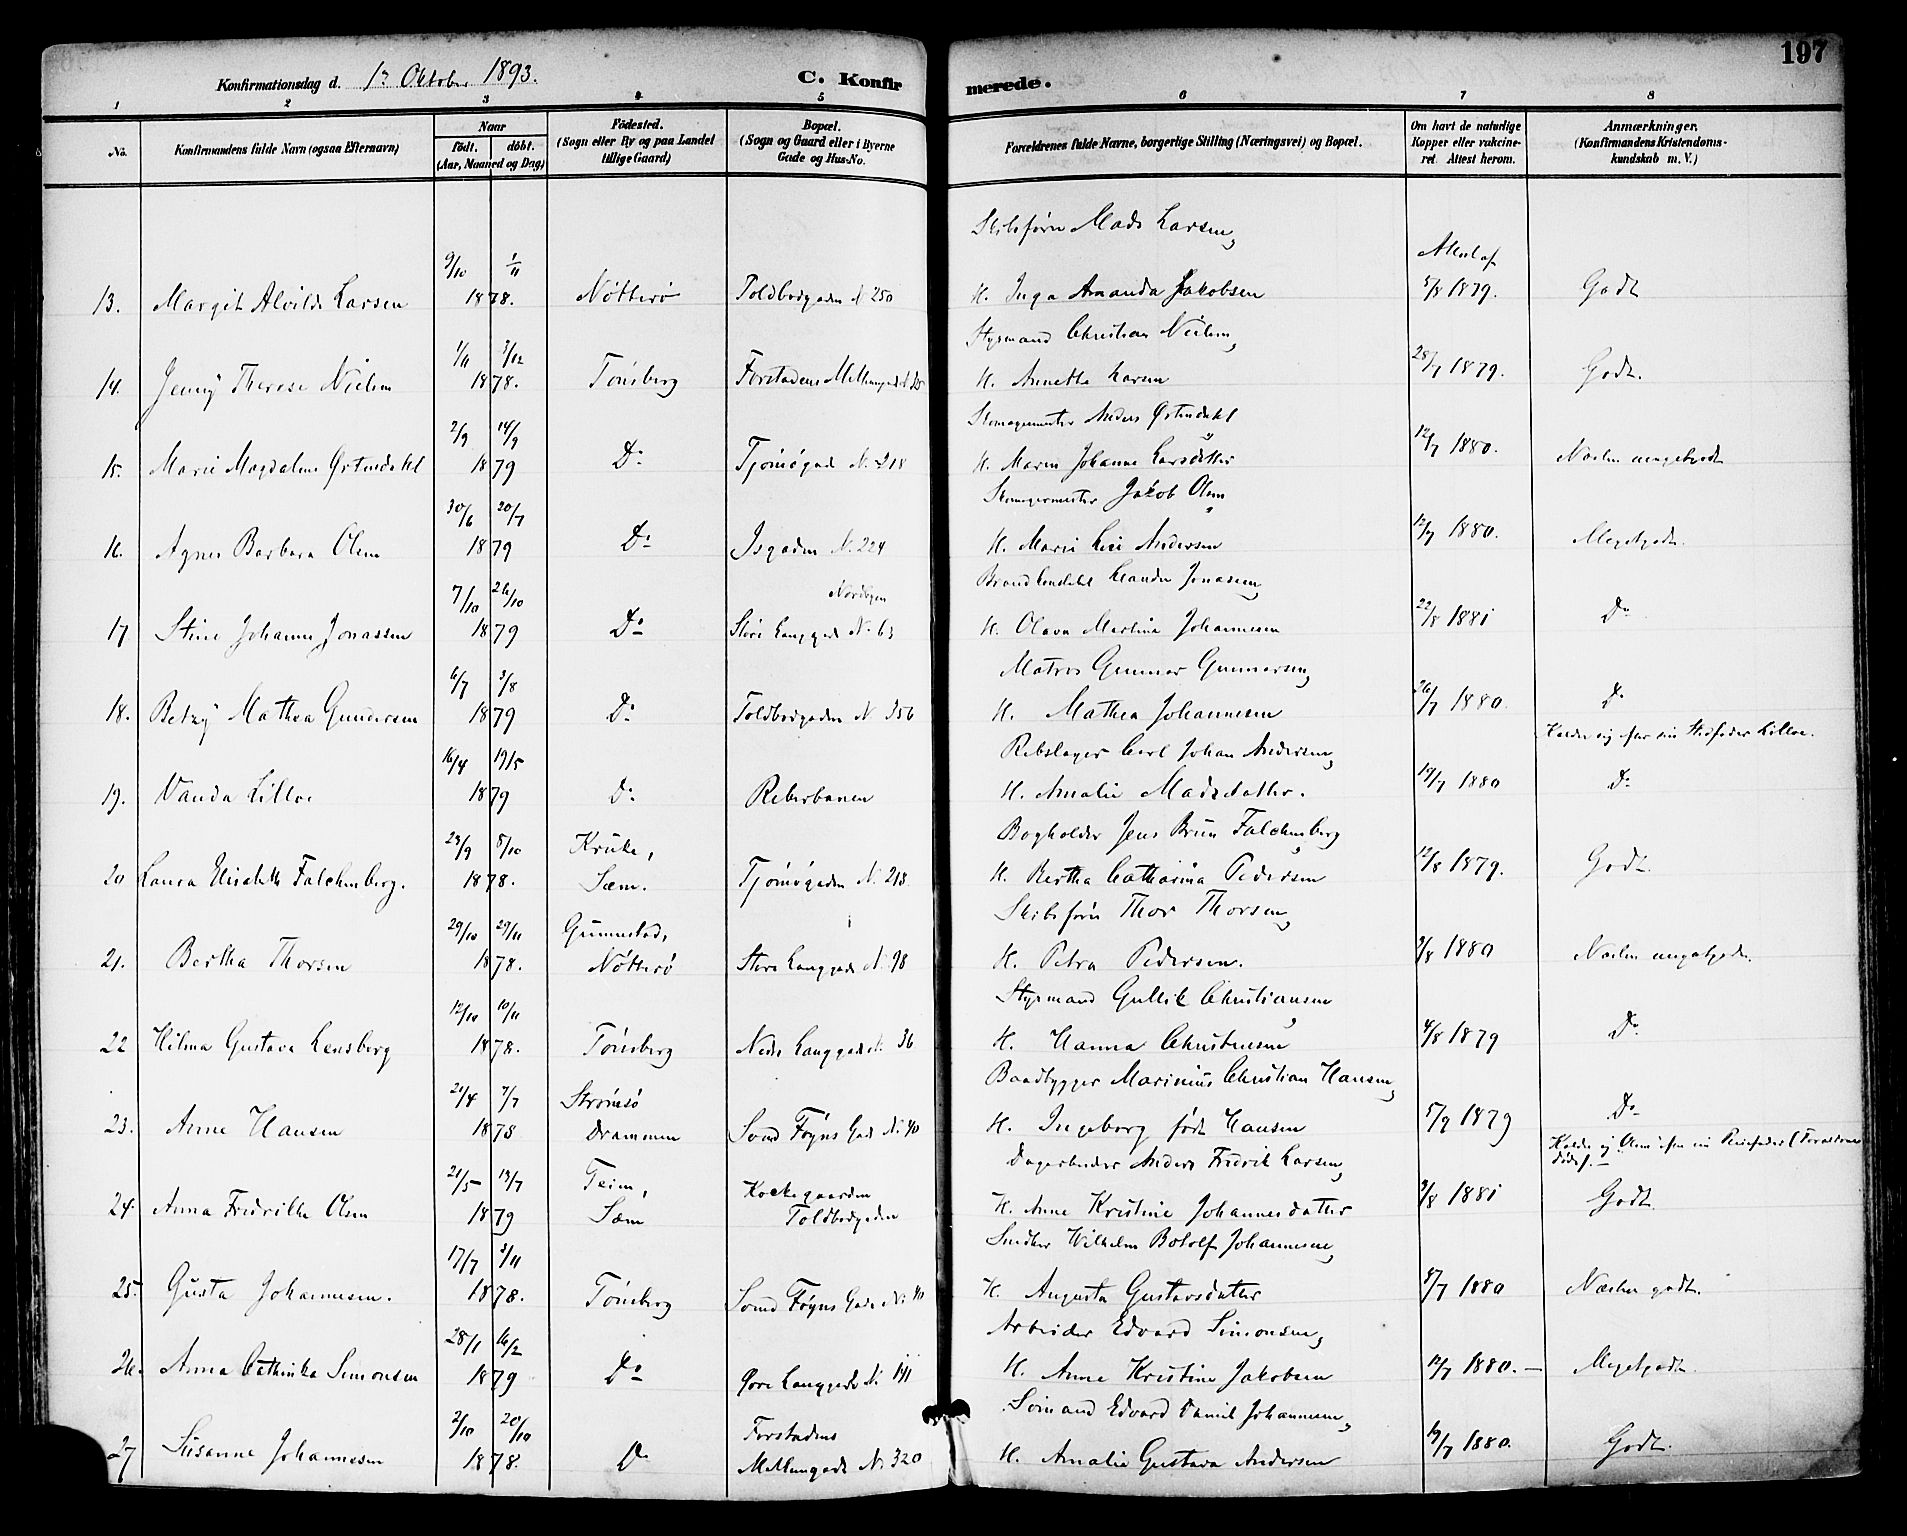 197
Konfirmationsdag d. 1ste Oktober 1893.
C. Konfirmerede.
1 2 3 4 5 6 7 8
No.
Konfirmandens fulde Navn (ogsaa Efternavn)
Naar
födt. döbt.
(Aar, Maaned og Dag)
Födested.
(Sogn eller By og paa Landet tillige Gaard)
Bopæl.
(Sogn og Gaard eller i Byerne Gade og Hus-No.
Forældrenes fulde Navne, borgerlige Stilling (Næringsvei) og Bopæl.
Om havt de naturlige Kopper eller vakcineret. Attest herom.
Anmærkninger.
(Konfirmandens Kristendomskundskab m. V.)
Skibsförer Mads Larsen,
9/10 1/11 Attest af
13. Margit Alvilde Larsen 1878. Nötterö Toldbodgaden N 250 H. Inga Amanda Jakobsen 5/8 1879. Godt
Styrmand Christian Nielsen,
14. Jenny Therese Nielsen 1/11 3/12 1878. Tönsberg Forstadens Mellemgade H. Annette Larsen 28/7 1879. Godt.
Skomagermester Anders Östendahl,
15. Marie Magdalene Östendahl 2/9 14/9 1879 Do Tjömögade N. 218 H. Maren Johanne Larsdatter 12/7 1880. Næsten megetgodt
Skomagermester Jakob Olsen,
16. Agnes Barbara Olsen 30/6 20/7 1879 Do Isgaden N. 224 H. Marie Lise Andersen 12/7 1880. Megetgodt.
Brandkonstabel Leander Jonassen,
Nordbyen
17 Stine Johanne Jonassen 7/10 26/10 1879 Do Store Langgade N. 63 H. Olava Martine Johannesen 22/8 1881 Do
Matros Gunnar Gunnarsen,
18. Betzy Mathea Gundersen 6/7 3/8 1879 Do Toldbodgaden N. 356 H. Mathea Johannesen 26/7 1880. Do
Kalder sig efter sin Stedfader Lilloe.
Rebslager Carl Johan Andersen,
19. Vanda Lilloe 16/4 19/5 1879 Do Reberbanen H. Amalie Madsdatter. 19/7 1880 Do
Bogholder Jens Brun Falchenberg,
20 Laura Elisabeth Falchenberg. 23/9 8/10 1878. Kruke, Sæm. Tjömögaden N. 218 H. Bertha Catharina Pedersen 12/8 1879. Godt.
Skibsförer Thor Thorsen,
21. Bertha Thorsen 29/10 29/11 1878. Gunnestad, Nötterö Store Langgade N. 98 H. Petra Pedersen. 2/8 1880 Næsten megetgodt.
Styrmand Gullik Christiansen,
22 Hilma Gustava Lensberg 12/10 10/11 1878. Tönsberg Nedre Langgade N. 36 H. Hanna Christensen 4/8 1879 Do
Baadbygger Marinius Christian Hansen,
23. Anne Hansen 21/4 7/7 1878 Strömsö Drammen Svend Föyns Gade N. 40 H. Ingeborg född Hansen 5/9 1879 Do
Kalder sig Olsen efter sin Pleiefader (Forældrene döde). —
Dagarbeider Anders Fredrik Larsen,
24. Anna Fredrikke Olsen 21/5 13/7 1879 Teim, Sæm Kockegaarden Toldbodgaden H. Anne Kristine Johannesdatter 3/8 1881 Godt.
Snedker Wilhelm Botolf Johannesen,
25. Gusta Johannesen. 17/7 3/11 1878. Tönsberg Svend Föyns Gade H. Augusta Gustavsdatter 8/7 1880 Næsten godt.
Arbeider Edvard Simonsen,
26. Anna Cathinka Simonsen 28/1 16/2 1879 Do Övre Langgade N. 141 H. Anne Kristine Jakobsen 12/7 1880. — Megetgodt.
Sömand Edvard Daniel Johannesen,
27 Susanne Johannesen 2/10 20/10 1878. Do Forstadens Mellemgade N. 320 H. Amalie Gustava Andersen 19/7 1880. Godt.